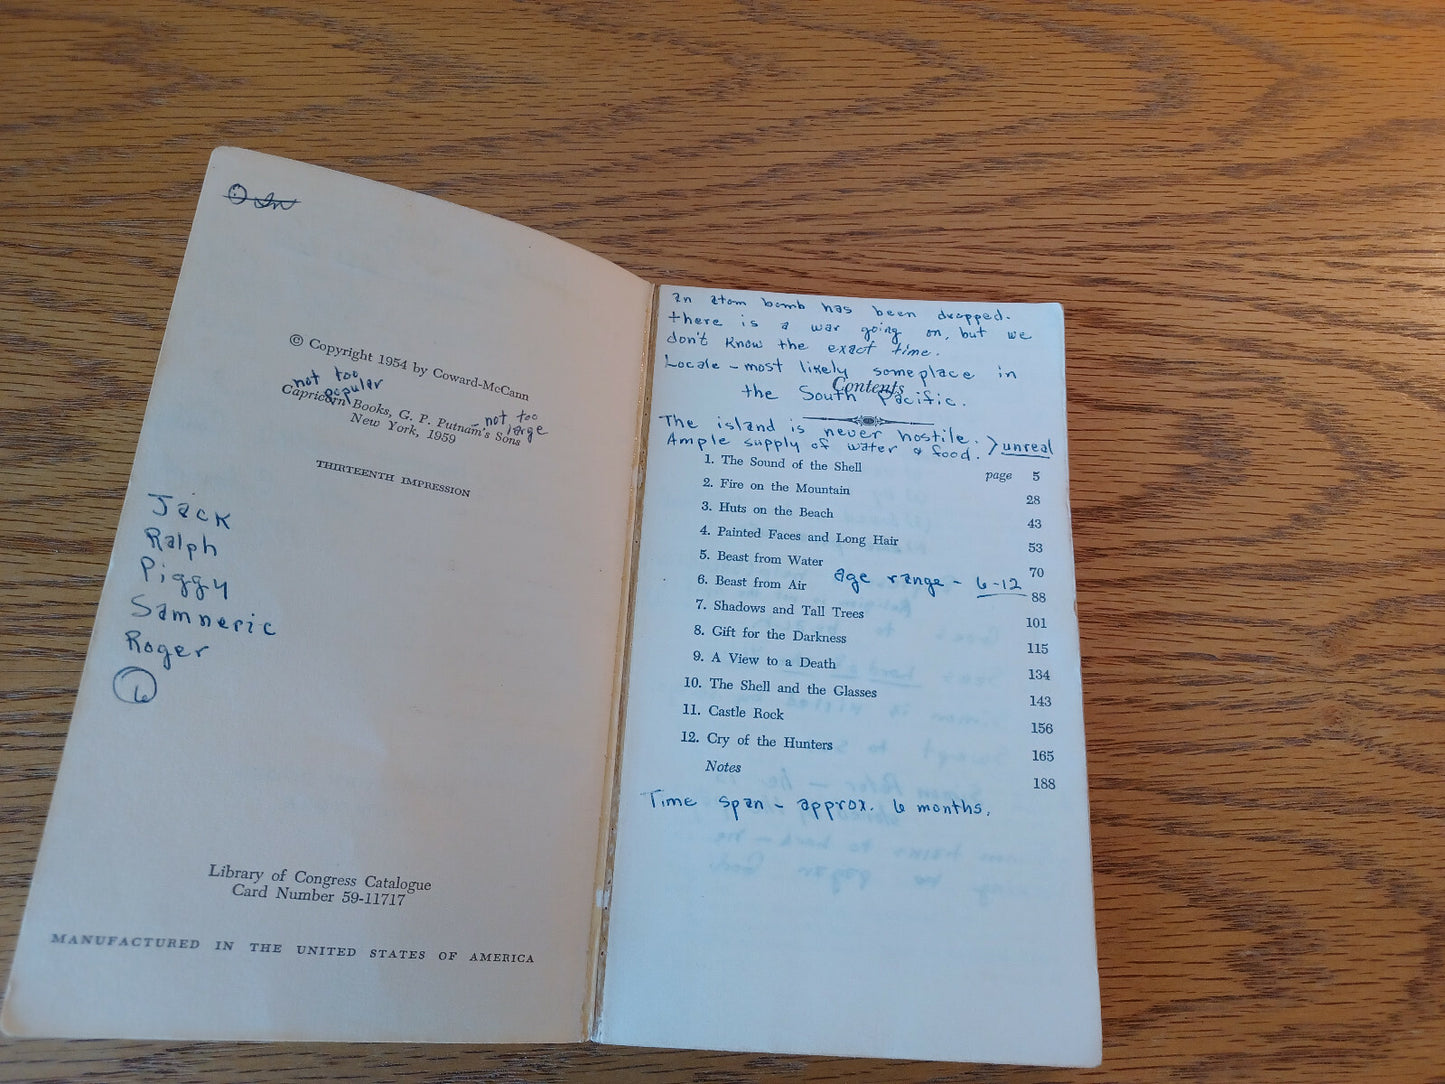 © Copyright 1954 by Coward-McCann
not too
popular
Capricorn Books, G. P. Putnam's Sons
- not too
large
New York, 1959
THIRTEENTH IMPRESSION
Jack
Ralph
Piggy
Samneric
Roger
6
Library of Congress Catalogue
Card Number 59-11717
MANUFACTURED IN THE UNITED STATES OF AMERICA
an atom bomb has been dropped.
there is a war going on, but we
don't know the exact time.
Locale - most likely someplace in
the South Pacific.
Contents
The island is never hostile.
Ample supply of water & food. > unreal
1. The Sound of the Shell page 5
2. Fire on the Mountain 28
3. Huts on the Beach 43
4. Painted Faces and Long Hair 53
5. Beast from Water 70
age range - 6-12
6. Beast from Air 88
7. Shadows and Tall Trees 101
8. Gift for the Darkness 115
9. A View to a Death 134
10. The Shell and the Glasses 143
11. Castle Rock 156
12. Cry of the Hunters 165
Notes 188
Time span - approx. 6 months.